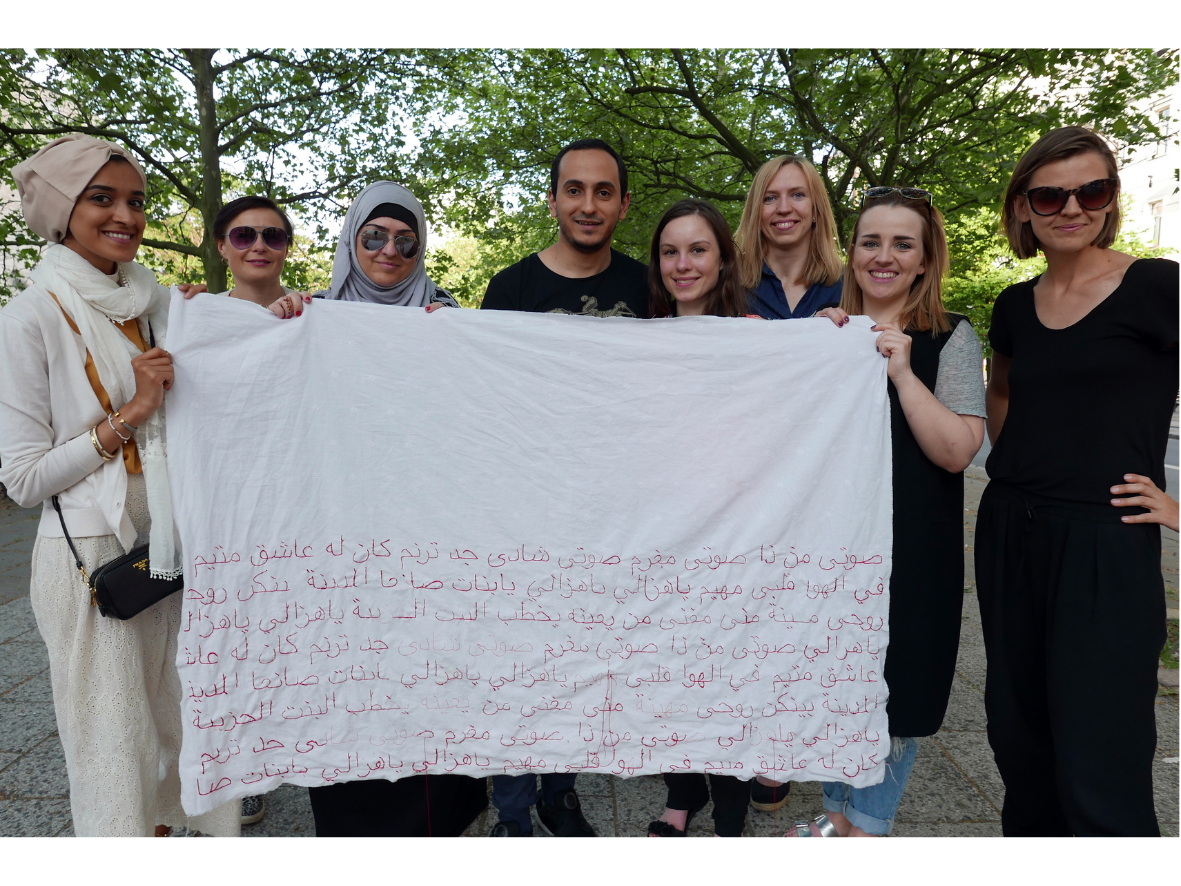 صوتي من ذا صوتي مغرم صوتي شادي جد ترنم كان له عاشق متيم
في الهوا قلبي مهيم ياهزالي ياهزالي يابنات صانعا المدينة بتكن روحـ
روحي مني مغني من يعينه يخطب البنت ياهزالي ياهزالـ
ياهزالي صوتي من ذا صوتي مغرم صوتي شادي جد ترنم كان له عاشـ
عاشق متيم في الهوا قلبي ياهزالي ياهزالي يابنات صانعا المديـ
المدينة بيتكن روحي مهينة مني مغني من يعينه يخطب البنت الحزينة
ياهزالي ياهزالي صوتي من ذا صوتي مغرم صوتي جد ترنم
كان له عاشق متيم في الهوا قلبي مهيم ياهزالي ياهزالي يابنات صا